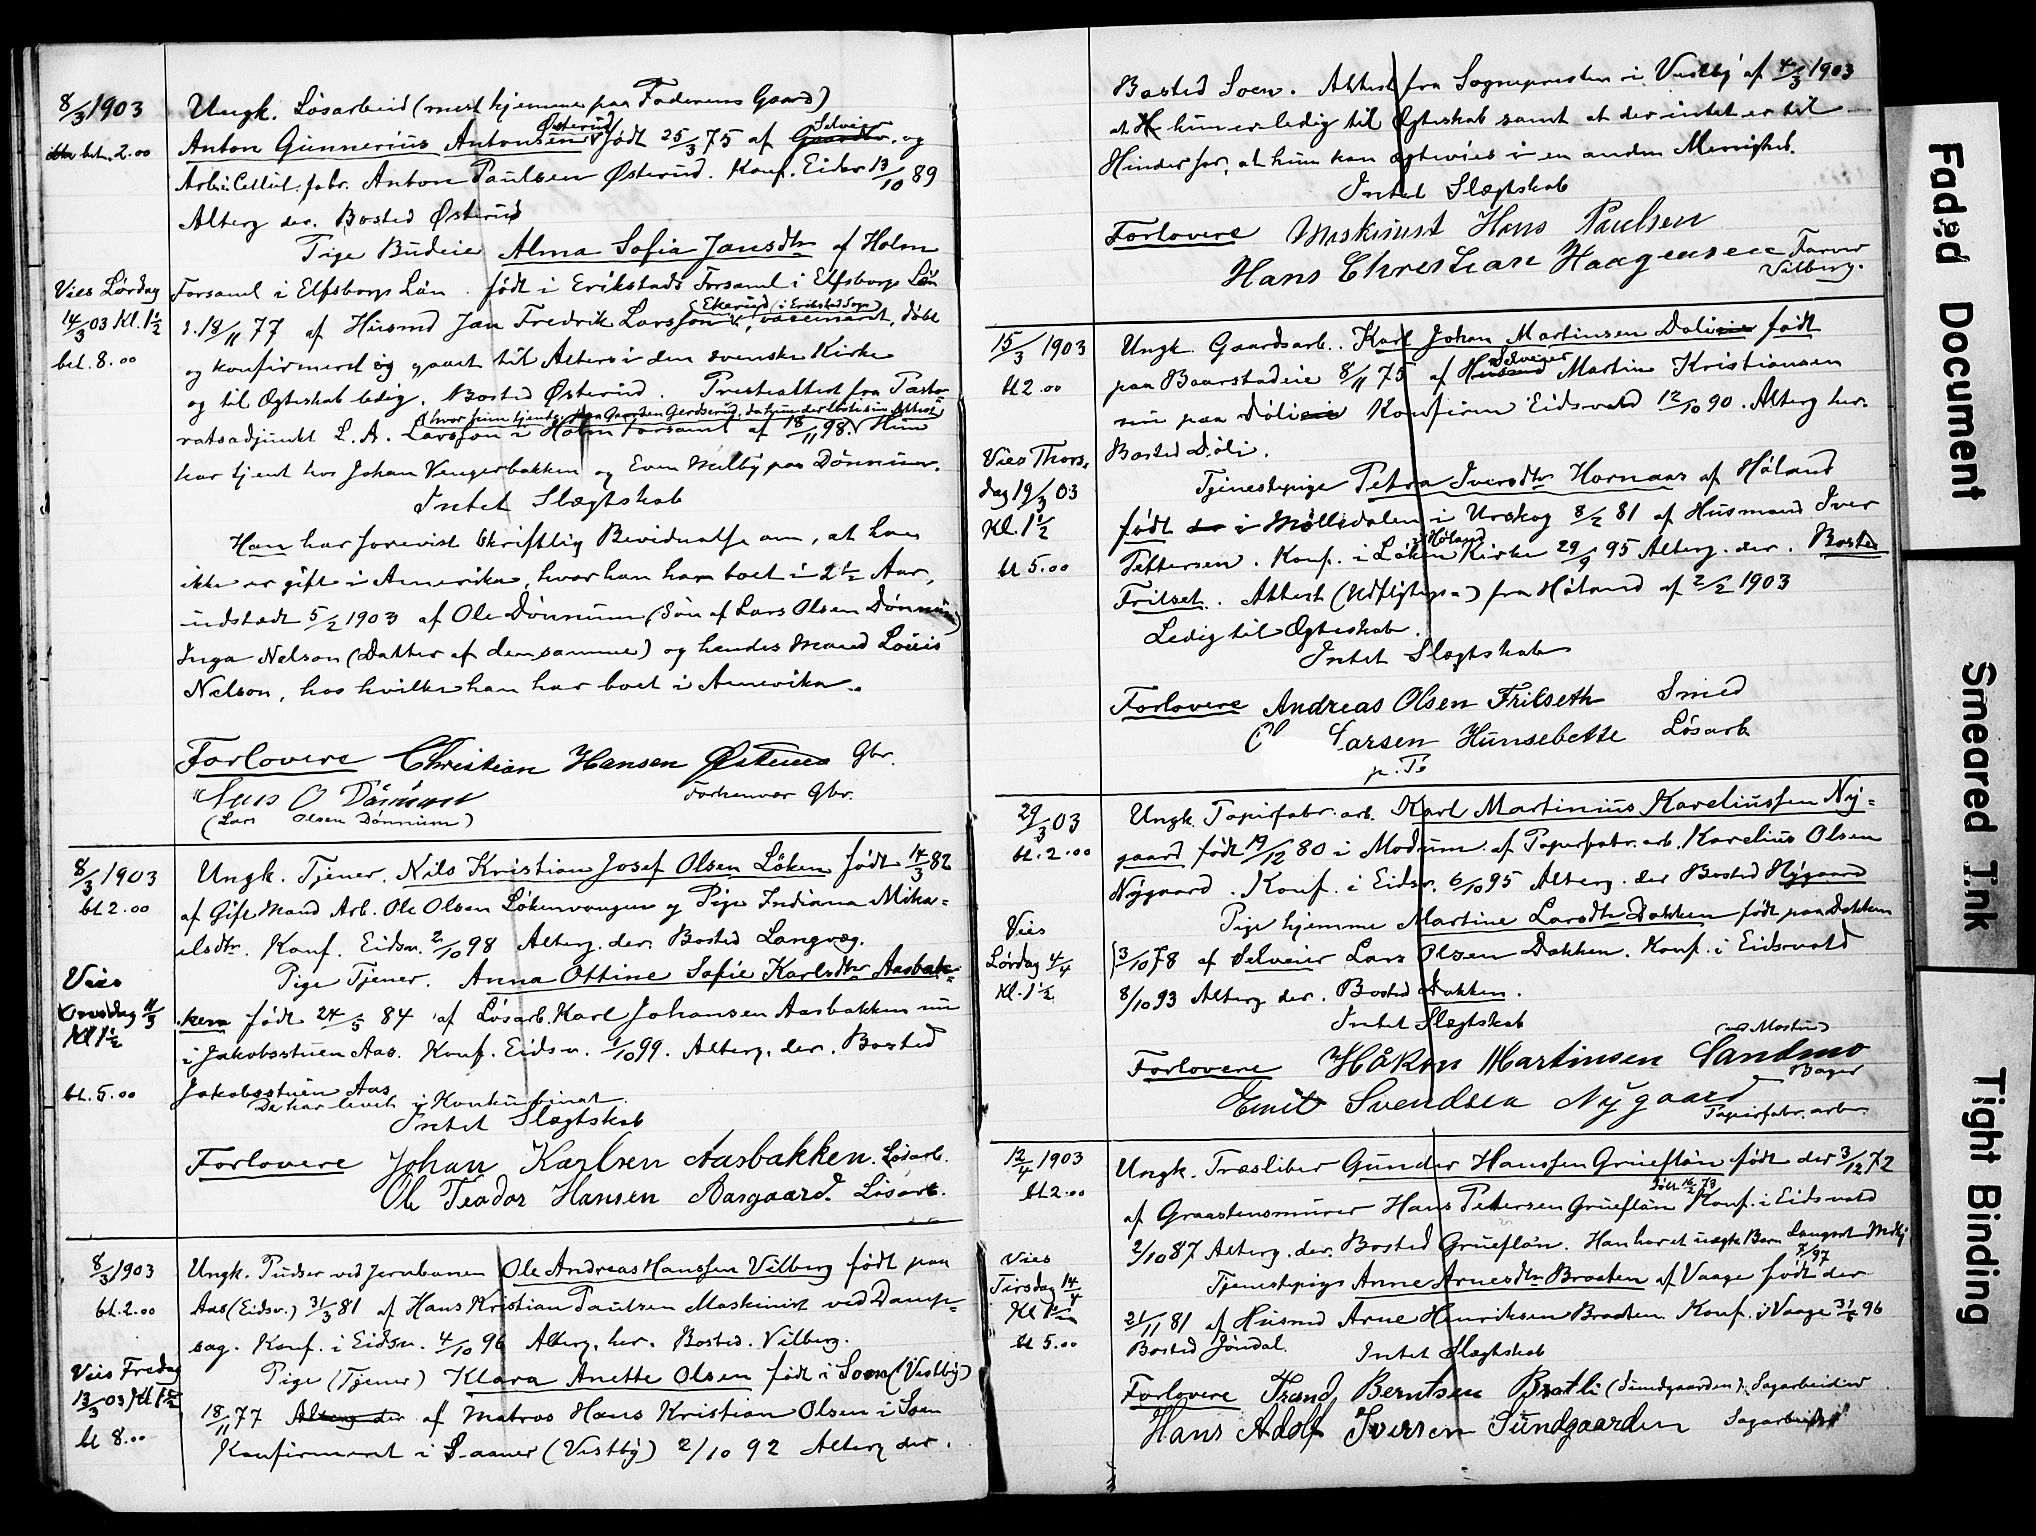 8/3 1903
bet. 2.00
Ungk. Løsarbeid (mest hjemme paa Faderens Gaard)
Anton Gunnerius Antonsen Østerud født 25/3 75 af Gaardbr. Selveier og
Arb. i Cellul. fabr. Anton Paulsen Østerud. Konf. Eidsv 13/10 89
Alterg. der. Bosted Østerud
Pige Budeie Alma Sofia Jansdtr af Holm
Vies Lørdag
14/3 03 Kl. 1½
bet. 8.00
Forsaml i Elfsborgs Län. født i Erikstads Forsaml i Elfsborgs Län
d. 18/11 77 af Husmd Jan Fredrik Larsson Ekerud (i Erikstad Sogn), døbt
og konfirmeret og gaaet til Alters i den svenske Kirke
og til Ægteskab ledig. Bosted Østerud. Presteattest fra Pasto-
ratsadjunkt L. A. Larsson i Holm Forsaml af 18/11 98. Hun
har tjent hos Johan Vengerbakken og Even Melby paa Dønnum.
Intet Slægtskab
Han har forevist skriftlig Bevidnelse om, at han
ikke er gift i Amerika, hvor han har boet i 2½ Aar,
udstædt 5/2 1903 af Ole Dønnum (Søn af Lars Olsen Dønnum)
Inga Nelson (Datter af densamme) og hendes Mand Louis
Nelson, hos hvilke han har boet i Amerika.
Forlovere Christian Hansen Østerud Gbr.
Lars O Dønnum Forhenvær Gbr.
(Lars Olsen Dønnum)
8/3 1903
bt. 2.00
Ungk. Tjener. Nils Kristian Josef Olsen Løken født 14/3 82
af Gift Mand Arb. Ole Olsen Løkenvangen og Pige Indiana Mika-
elsdtr. Konf. Eidsv. 2/10 98 Alterg. der. Bosted Langvæg.
Pige Tjener. Anna Ottine Sofie Karlsdtr Aasbak-
Vies
Onsdag 11/3
Kl 1½
bt. 5.00
ken født 24/5 84 af Løsarb. Karl Johansen Aasbakken nu
i Jakobsstuen Aas. Konf. Eidsv. 1/10 99. Alterg. der. Bosted
Jakobsstuen Aas
De har levet i Konkubinat.
Intet Slægtskab
Forlovere Johan Karlsen Aasbakken. Løsarb.
Ole Teodor Hansen Aasgaard. Løsarb.
8/3 1903
bt. 2.00
Ungk. Pudser ved Jernbanen Ole Andreas Hanssen Vilberg født paa
Aas (Eidsv.) 31/3 81 af Hans Kristian Paulsen Maskinist ved Damp-
sag. Konf. i Eidsv. 4/10 96 Alterg. her. Bosted. Vilberg.
Vies Fredag
13/3 03 Kl 1½
bt 8.00
Pige (Tjener) Klara Anette Olsen født i Soon (Vestby)
18/11 77 Alterg der af Matros Hans Kristian Olsen i Soen
Konfirmeret i Saaner (Vestby) 2/10 92 Alterg der.
Bosted Soen. Attest fra Sognepresten i Vestby af 4/3 1903
at hun er ledig til Ægteskab samt at der intet er til
Hinder for, at hun kan ægtevies i en anden Menighed.
Intet Slægtskab
Forlovere Maskinist Hans Paulsen
Hans Christian Haagensen Farver
Vilberg.
15/3 1903
bt 2.00
Ungk. Gaardsarb. Karl Johan Martinsen Dølieie født
paa Baarstadeie 8/11 75 af Husmd Selveier Martin Kristiansen
nu paa Dølieie Konfirm Eidsvold 12/10 90. Alterg her.
Bosted Døli.
Vies Thors-
dag 19/3 03
Kl. 1½
bt 5.00
Tjenestepige Petra Iversdtr Hornaas af Høland
født i Mølledalen i Urskog 8/2 81 af Husmand Iver
Pettersen. Konf. i Løken Høland Kirke 29/9 95 Alterg. der. Bosted
Frilset. Attest (Udflytngs-) fra Høland af 2/2 1903
Ledig til Ægteskab.
Intet Slægtskab
Forlovere Andreas Olsen Frilseth Smed
Larsen Hunsebette Løsarb
29/3 03
bt. 2.00
Ungk. Papirfabr. arb. Karl Martinius Kareliussen Ny-
gaard født 19/12 80 i Modum af Papirfabr. arb. Karelius Olsen
Nygaard. Konf. i Eidsv. 6/10 95 Alterg. der Bosted Nygaard
Pige hjemme Martine Larsdtr Dokken født paa Dokken
Vies
Lørdag 4/4
Kl. 1½
3/10 78 af Selveier Lars Olsen Dokken. Konf. i Eidsvold
8/10 93 Alterg der. Bosted Dokken.
Intet Slægtskab
Forlovere Håkon Martinsen Sandmo
Bager
Emil Svendsen Nygaard
Papirfabr. arb.
12/4 1903
bt. 2.00
Ungk. Træsliber Gunder Hanssen Grueflån født der 3/12 72
af Graastensmurer Hans Pettersen Grueflån Konf. i Eidsvold
2/10 87 Alterg. der. Bosted Grueflån. Han har et uægte Barn
7/97
Vies
Tirsdag 14/4
Kl 1½
bt 5.00
Tjenestepige Anne Arnesdtr Braaten af Vaage født der
21/11 81 af Husmd Arne Henriksen Braaten Konf. i Vaage 96
Bosted Jøndal.
Intet Slægtskab
Forlovere Trond Berntsen Bratli (Sundgaarden). Sagarbeider
Hans Adolf Iversen Sundgaarden Sagarbeider
Faded Document
Smeared Ink
Tight Binding